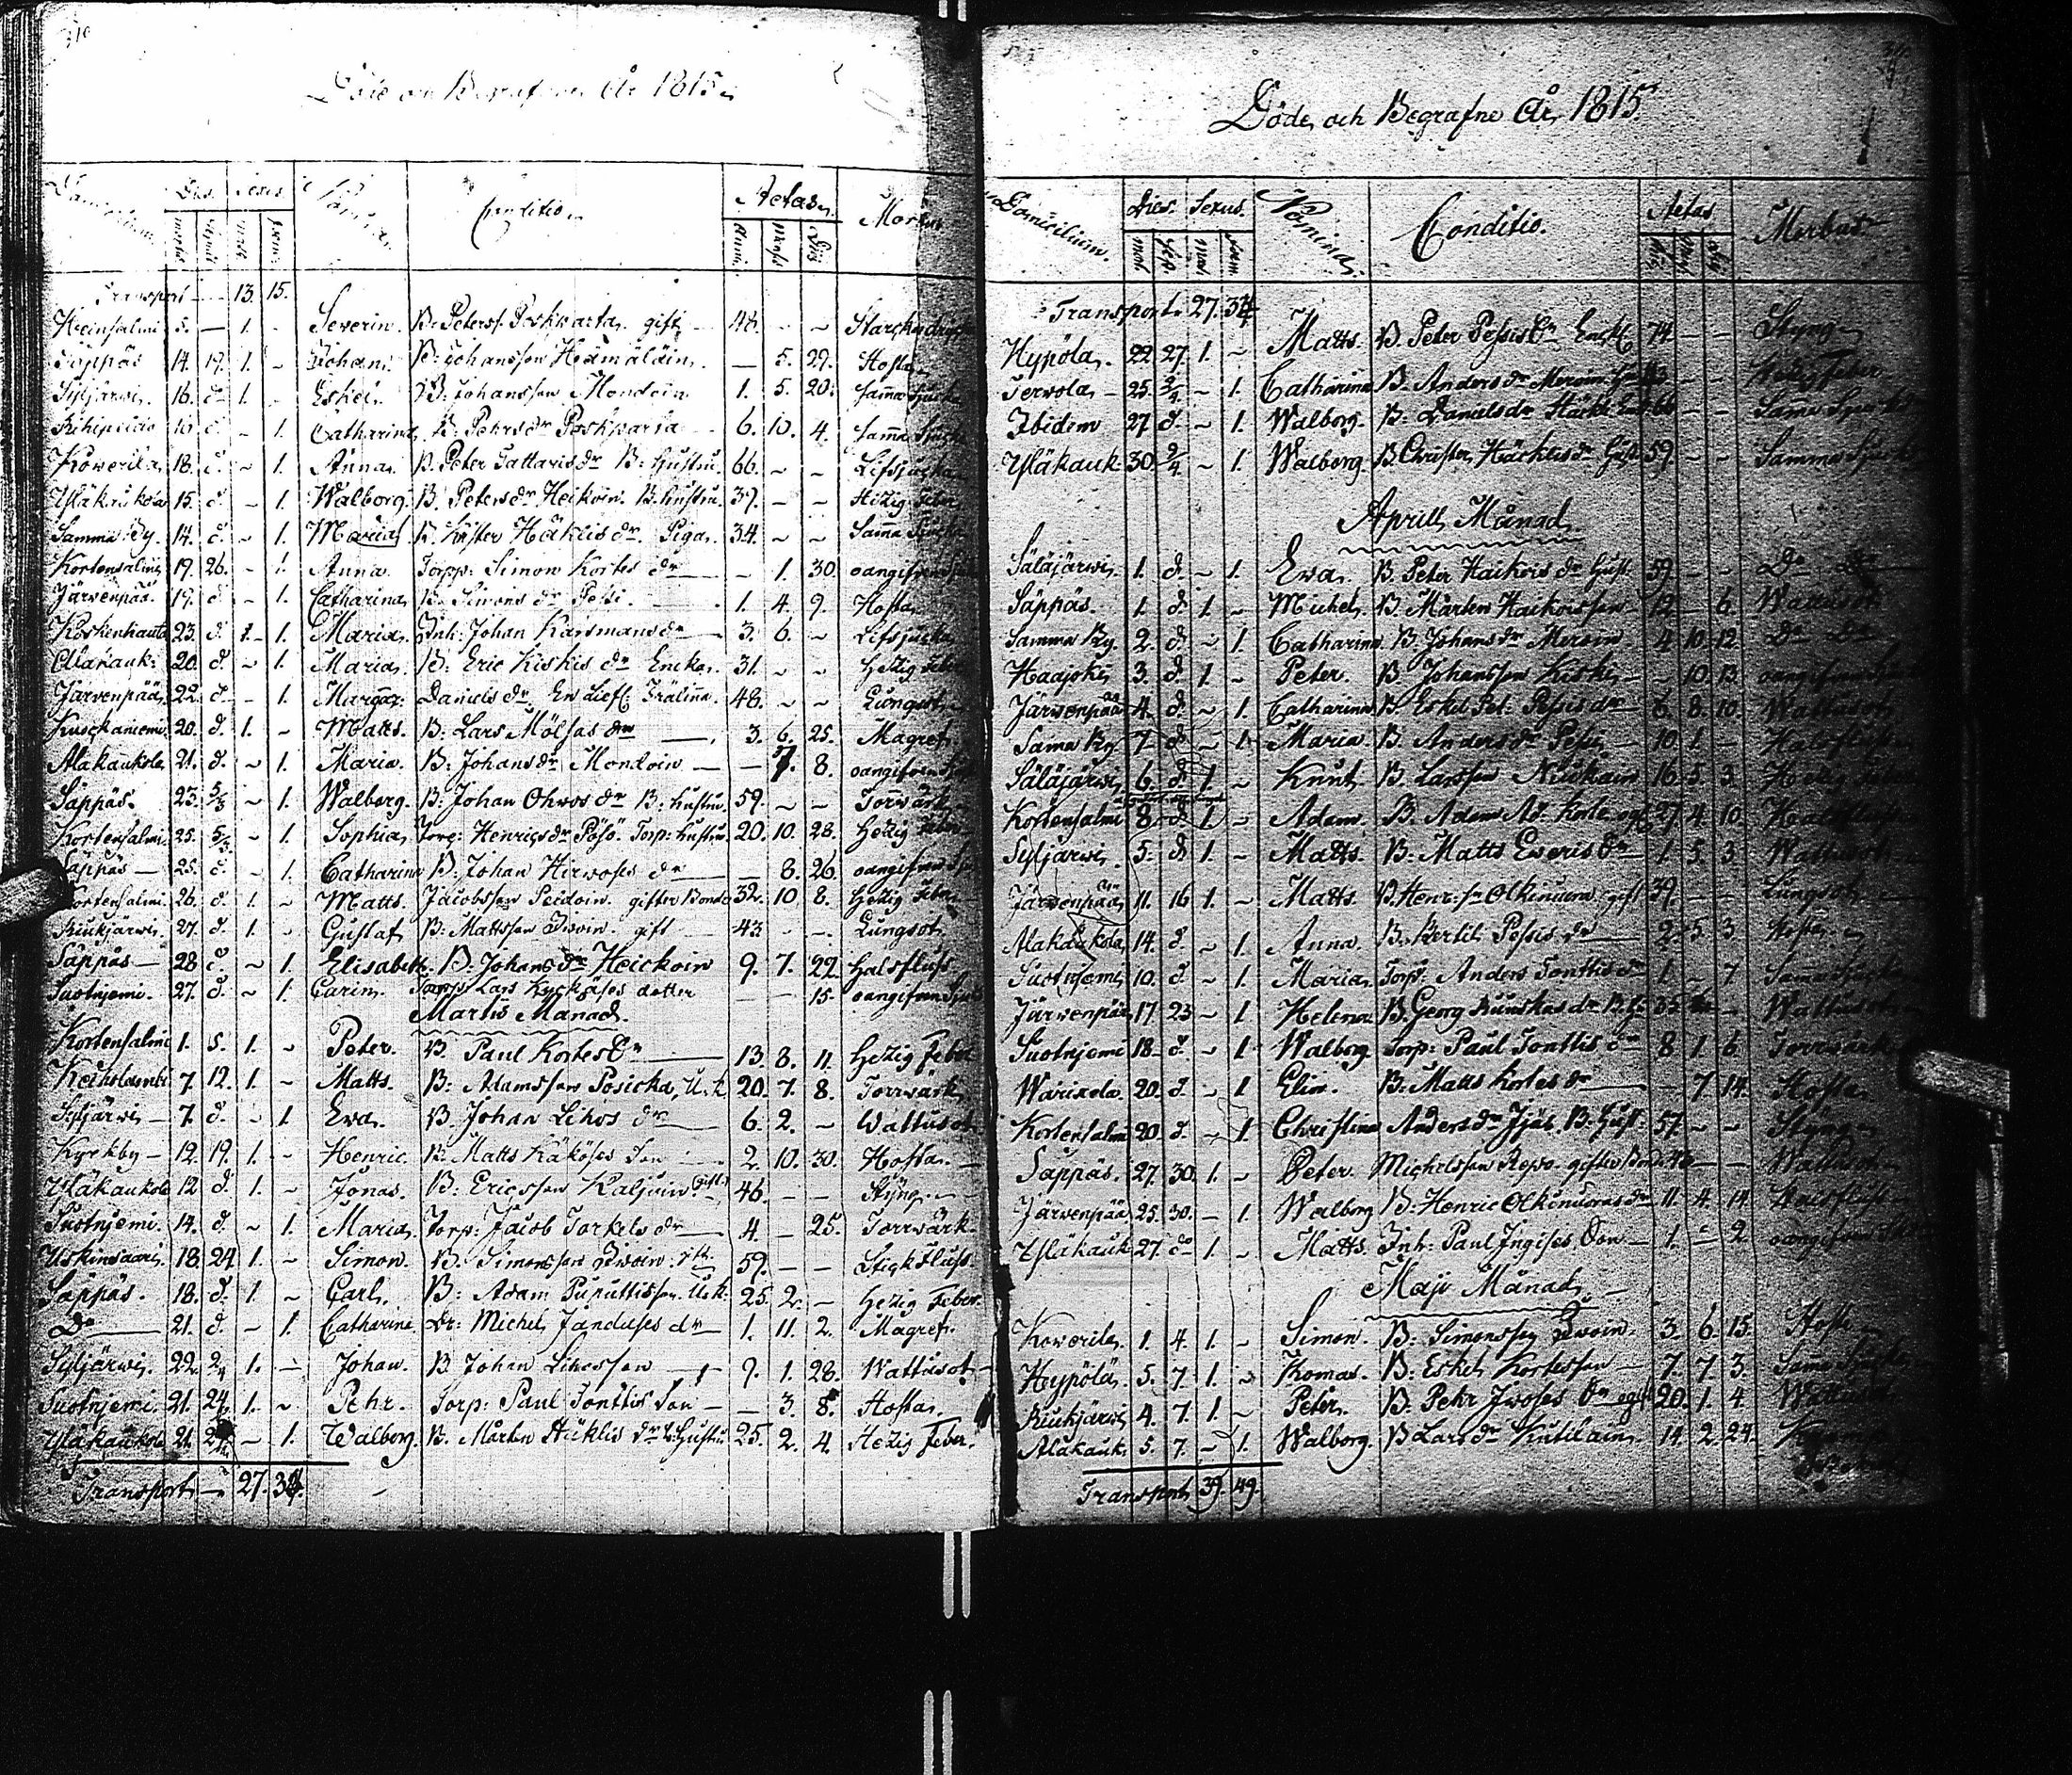 310
Döde och Begrafne År 1815.
Dies. Sexus Nomina Conditio. Aetas. Morbus
Transport — 13. 15.
Heinsalmi 5. — 1. - Severin. B. Peters. Poskparta gift 48. - -
Säppäs 14. 19. 1. - Johan. B: Johansson Hämäläin. — 5. 29. Hosta
Syljärwi. 16. d. 1. - Eskel. B. Johansson Mondoin 1. 5. 20. Samma Sjuck
16. d. - 1. Catharina B. Pehrs dr Poskparta 6. 10. 4. Samma Sjuck
Kowerila 18. d. - 1. Anna. B. Peter Tattaris dr B: hustru. 66. - - Lifsjucka
Yläkukola 15. d. - 1. Walborg. B. Peters dr Heikoin. B. hustru. 39. - - Hezig feber
Samma By. 14. d. - 1. Maria. B. Krister Häklis dr Piga. 34. - - Samma Sjuck
Kortensalmi 19. 26. - 1. Anna. Torpp: Simon Kortes dr — - 1. 30. oangifven
Järvenpää. 19. d - 1. Catharina B. Simons dr Pessi. 1. 4. 9. Hosta
Koskenhauta 23. d. - 1. Maria. Inh: Johan Karsmans dr 3. 6. - Lifsjucka
Alakauk: 20. d. - 1. Maria. B: Eric Kiskis dr Encka. 31. - - Hezig feber
Järvenpää 22. d - 1. Margar: Daniels dr 48. - - Lungsot
20. d. 1. - Matts. B. Lars Mölsas 3. 6. 25. Magref.
Alakaukola 21. d. - 1. Maria. B: Johans dr Mondoin — - 7. 8. oangifven
Säppäs. 23. 5/3 - 1. Walborg. B: Johan Ohwos dr B: hustru. 59. - - Torrwärk
Kortensalmi. 25. 5/3. - 1. Sophia, Torp: Henrics dr Pösö. Torp: hustru 20. 10. 28. Hezig feber
Säppäs — 25. d. - 1. Catharina B: Johan Hirwoses dr — - 8. 26. oangifven
Kortensalmi. 26. d. 1. - Matts. Jacobsson Peidoin. gifter Bonde 32. 10. 8. Hezig feber
Riukjärwi. 27. d. 1. - Gustaf B: Mattsson Iivoin. gift 43. - - Lungsot
Säppäs — 28 d. - 1. Elisabeth. B: Johans dr Heickoin 9. 7. 22. Halsfluss
Suotnjemi. 27. d. - 1. Carin. Torp: Lars Kyckäses dotter — - 15. oangifven Sjuk
Martii Månad.
Kortensalmi 1. 5. 1. - Peter. B. Paul Kortes Sn — 13. 8. 11. Hezig Feber
Keiholambi 7. 12. 1. - Matts. B: Adamsson Posicka, U.k. 20. 7. 8. Torrwärk
Syljärwi — 7. d. - 1. Ewa. B. Johan Lihos dr 6. 2. - Wattusot
Kyrkby — 12. 19. 1. - Henric. B: Matts Käköses Son 2. 10. 30. Hosta. —
Yläkaukola 12 d. 1. - Jonas. B: Ericsson Kaljuin. gift 46. - - Styng. —
Suotnjemi. 14. d. - 1. Maria, Torp: Jacob Torkels dr 4. - 25. Torrwärk
Uskinsaari. 18. 24. 1. - Simon. B. Simonsson Iwoin. 59. - - Stickfluss
Säppäs. 18. d. 1. - Carl. B: Adam Puputtisson U.k. 25. 2. - Hezig Feber.
Do — 21. d. - 1. Catharina. Dr: Michel Janduses dr 1. 11. 2. Magref.
Syljärwi. 22. 2/4 1. - Johan. B. Johan Lihosson — 9. 1. 28. Wattusot
Suotnjemi. 21. 24. 1. - Pehr. Torp: Paul Tonttis Son — - 3. 8. Hosta.
Yläkaukola 21. - 1. Walborg. B. Mårten Häklis dr B. Hustru 25. 2. 4. Hezig Feber.
Transport — 27. 34.
Döde och Begrafne År 1815.
Domicilium. Dies. Sexus. Nomina. Conditio. Aetas Morbus
Transport. 27. 34
Hypölä. 22. 27. 1. - Matts. B. Peter Pessis Sn Enckl. 74. - - Styng
Terwola — 25. 2/4 - 1. Catharina B. Anders dr - - Hezig Feber
Ibidem 27. d. - 1. Walborg. B. Daniels dr Häcki 66 - - Samma Sjuka
Yläkauk 30. 2/4 - 1. Walborg B. Christer Häcklis dr Gust 59. - - Samma Sjuk
Aprill Månad.
Säläjärwi. 1. d. - 1. Ewa. B. Peter Haikois dr Gust 59. - - Do Do
Säppäs. 1. d. 1. - Michel. B. Mårten Haikoisson 12 - 6. Wattusot
Samma By. 2. d. - 1. Catharina B. Johans dr 4 10. 12. Do
Haajoki 3. d. 1. - Peter. B. Johansson Kiski - 10. 13. oangifven
Järwenpää 4. d. - 1. Catharina B. Eskil Pet. Pessis dr 6. 8. 10. Wattusot
Samma By. 7. d - 1. Maria. B. Anders dr Pessi 10. 1. - Halsfluss
Säläjärwi 6. d. 1. - Knut. B. Larsson Niukain 16. 5. 3.
Kortensalmi 8. d 1. - Adam. B. Adams Ad: Korte ogift 27. 4. 10. Halsfluss
Syljärwi. 5. d. 1. - Matts. B: Matts Eweris Sn 1. 5. 3. Wattusot
Järwenpää 11. 16. 1. - Matts. B. Henr: sn Olkinuora gift 39. - - Lungsot
Alakaukola 14. d. - 1. Anna. B. Bertil Pessis dr 2. 5. 3 Hosta
Suotnjemi 10. d. - 1. Maria. Torp. Anders Tonttis dr 1. - 7 Samma
Järwenpää 17. 23 - 1. Helena. B. Georg Runskas dr 35 - Wattusot
Suotnjemi 18. d. - 1. Walborg Torp: Paul Tonttis dr 8. 1. 6. Torrwärk
Wärikola. 20. d. - 1. Elin. B. Matts Kortes dr — - 7. 14. Hosta
Kortensalmi 20. d. - 1. Christina Anders dr Ijäs. B. Gust. 57. - - Styng
Säppäs. 27. 30. 1. - Peter. Michelsson Repo. gifter Bonde 48 - - Wattusot
Järwenpää 25. 30. - 1. Walborg B: Henric Olkinuoras dr 11. 4. 14. Halsfluss
Yläkauk 27. do 1. - Matts. Inh: Paul Ingises Son — 1. - 2. oangifven
Maji Månad.
Kowerila. 1. 4. 1. - Simon. B: Simonsson Iwoin. 3. 6. 15. Hosta
Heypölä. 5. 7. 1. - Thomas. B: Eskel Kortesson — 7. 7. 3. Samma
Riukjärwi 4. 7. 1. - Peter. B: Pehr Iwoses Sn ogift 20. 1. 4. Wattusot
Alakauk. 5. 7. - 1. Walborg. B Lars dr Kutilain 14. 2. 24.
Transport 39. 49.